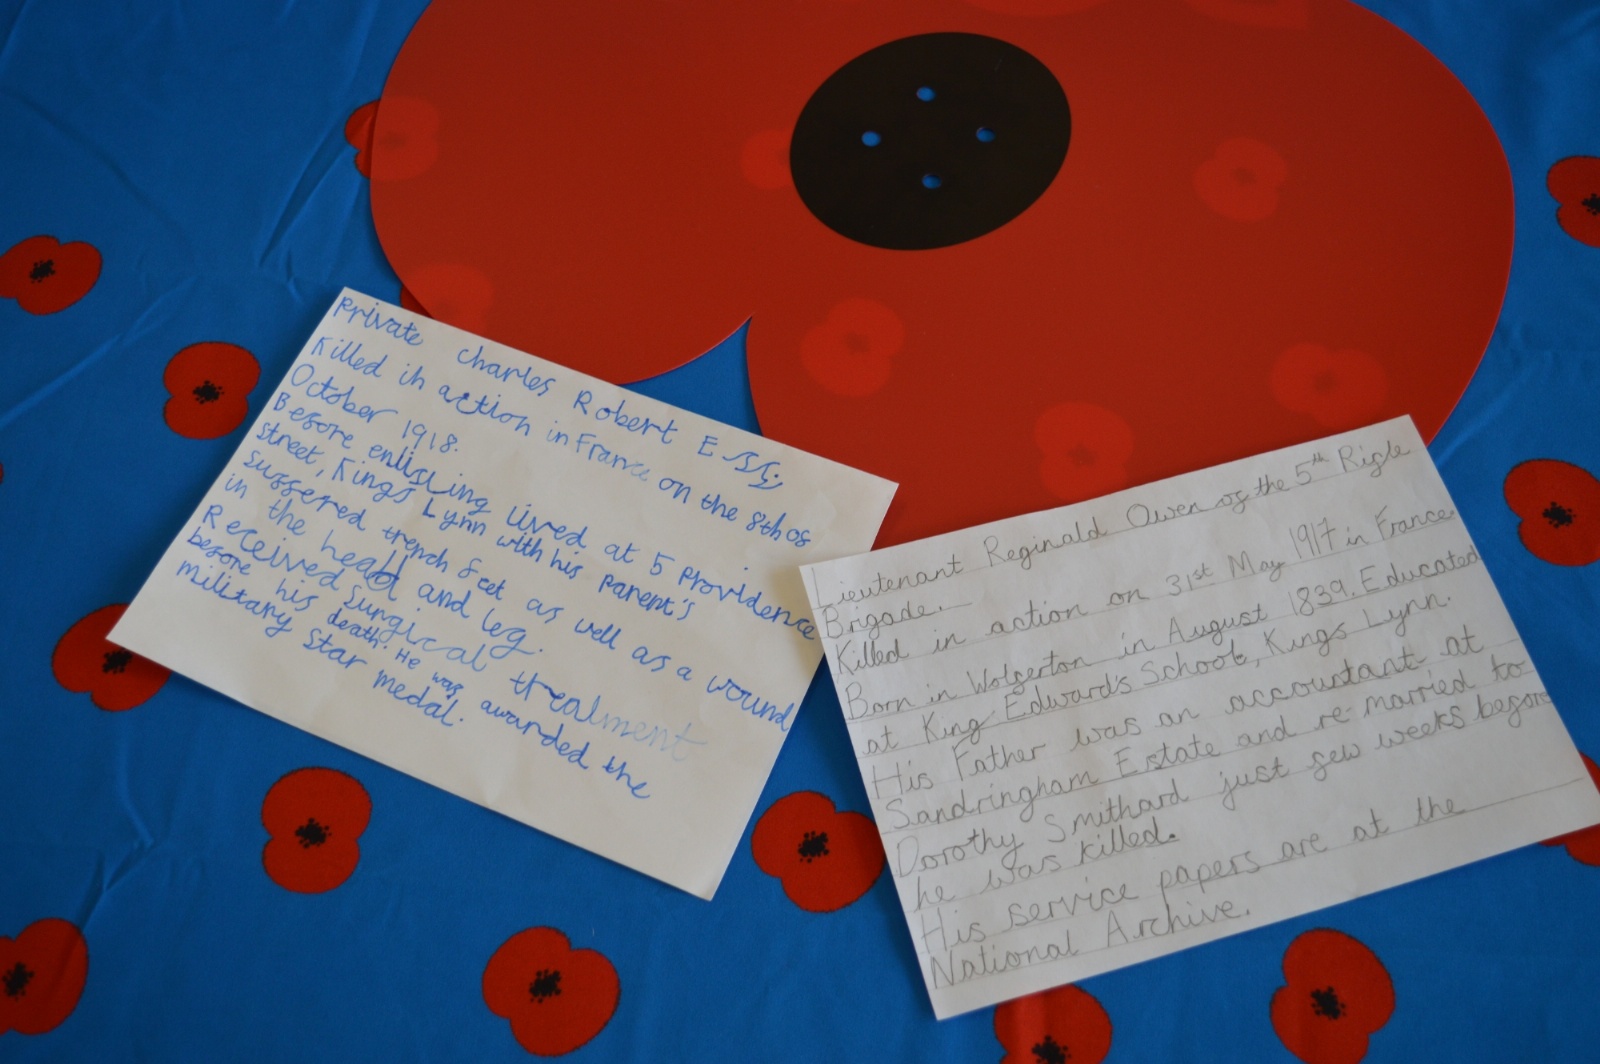 Private Charles Robert Essy.
Killed in action in France on the 8th of
October 1918.
Before enlisting lived at 5 providence
street, Kings Lynn with his parent's
suffered trench feet as well as a wound
in the head and leg.
Received surgical treatment
before his death. He was awarded the
military star medal.
Lieutenant Reginald Owen of the 5th Rifle
Brigade.
Killed in action on 31st May 1917 in France.
Born in Wolferton in August 1839. Educated
at King Edward's School, Kings Lynn.
His Father was an accountant at
Sandringham Estate and re-married to
Dorothy Smithard just few weeks before
he was killed.
His service papers are at the
National Archive.